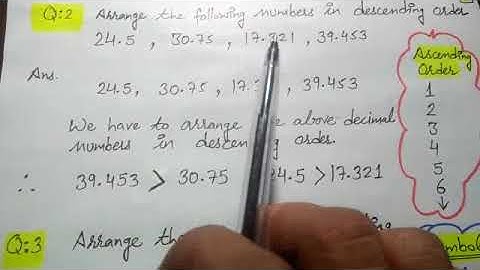 Q:2 Arrange the following numbers in descending order
24.5 , 30.75 , 17.321 , 39.453
Ans. 24.5 , 30.75 , 17. , 39.453
We have to arrange above decimal
numbers in descending order.
∴ 39.453 > 30.75 24.5 > 17.321
Q:3 Arrange
Ascending
Order
1
2
3
4
5
6
↓